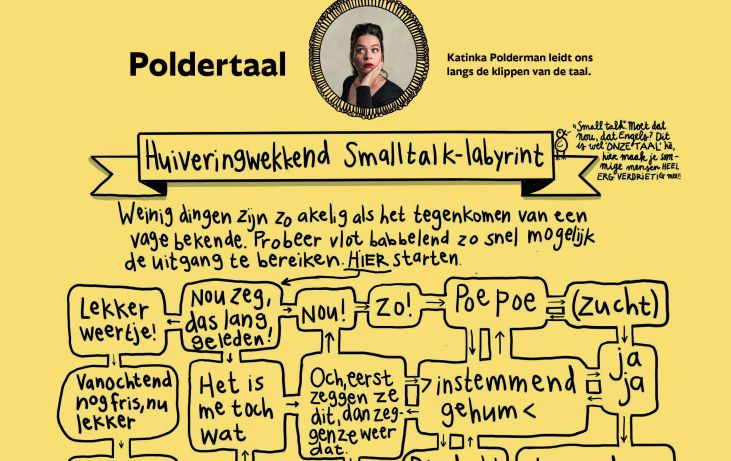 Poldertaal
Katinka Polderman leidt ons
langs de klippen van de taal.
Huiveringwekkend Smalltalk-labyrint
"Smalltalk". Moet dat
nou, dat Engels? Dit
is wel 'ONZE TAAL' hè,
hier maak je som-
mige mensen HEEL
ERG VERDRIETIG mee!
Weinig dingen zijn zo akelig als het tegenkomen van een
vage bekende. Probeer vlot babbelend zo snel mogelijk
de uitgang te bereiken. HIER starten.
Lekker
weertje!
Nou zeg,
das lang
geleden!
Nou!
Zo!
Poe poe
(zucht)
Vanochtend
nog fris, nu
lekker
Het is
me toch
wat
Och, eerst
zeggen ze
dit, dan zeg-
gen ze weer
dat.
>instemmend
gehum<
ja
ja